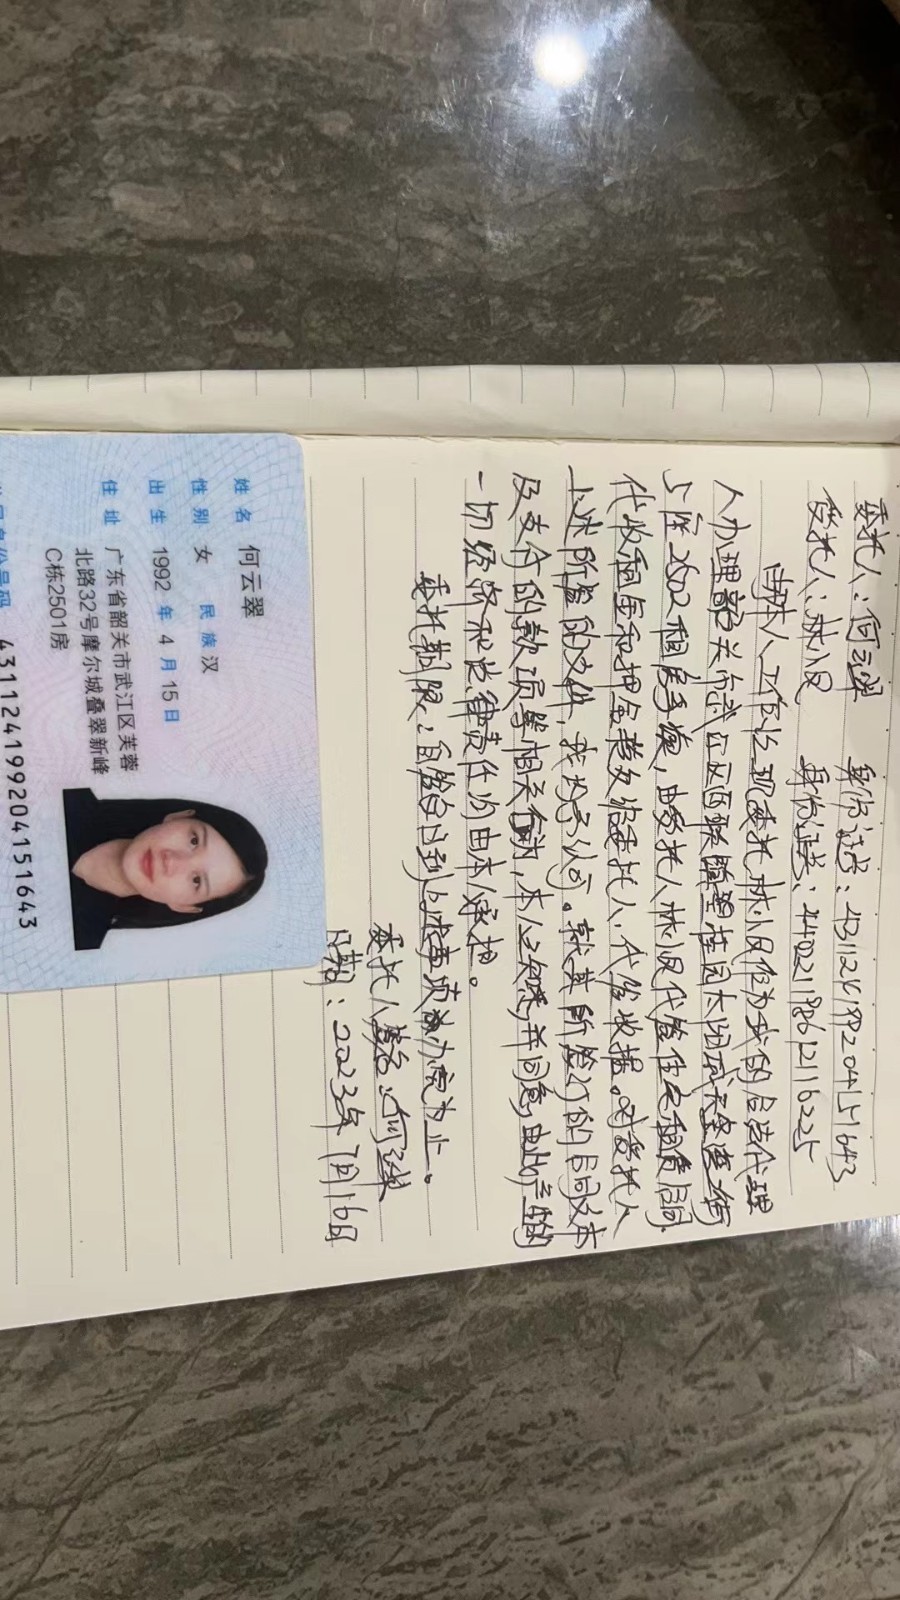 委托人：何云翠 身份证号：431124199204151643
受托人：林小足 身份证号：440221198612116225
由本人工作忙现委托林小足作为我的合法代理
人办理韶关市武江区西联镇碧桂园太阳城天玺湾二街
5座2502租房手续，由委托人林小足代签住宅租赁合同
代收租金和押金转交给委托人，代签收据。对受托人
上述所签的文件，我均予认可。就其所签订的合同文本
及支付的款项等相关行为，本人知悉，并同意，由此产生的
一切经济和法律责任均由本人承担。
委托期限：自签字日到上述事项办完为止。
委托人签名：何云翠
日期：2023年7月16日
姓名 何云翠
性别 女 民族 汉
出生 1992 年 4 月 15 日
住址 广东省韶关市武江区芙蓉
北路32号摩尔城叠翠新峰
C栋2501房
公民身份号码 431124199204151643